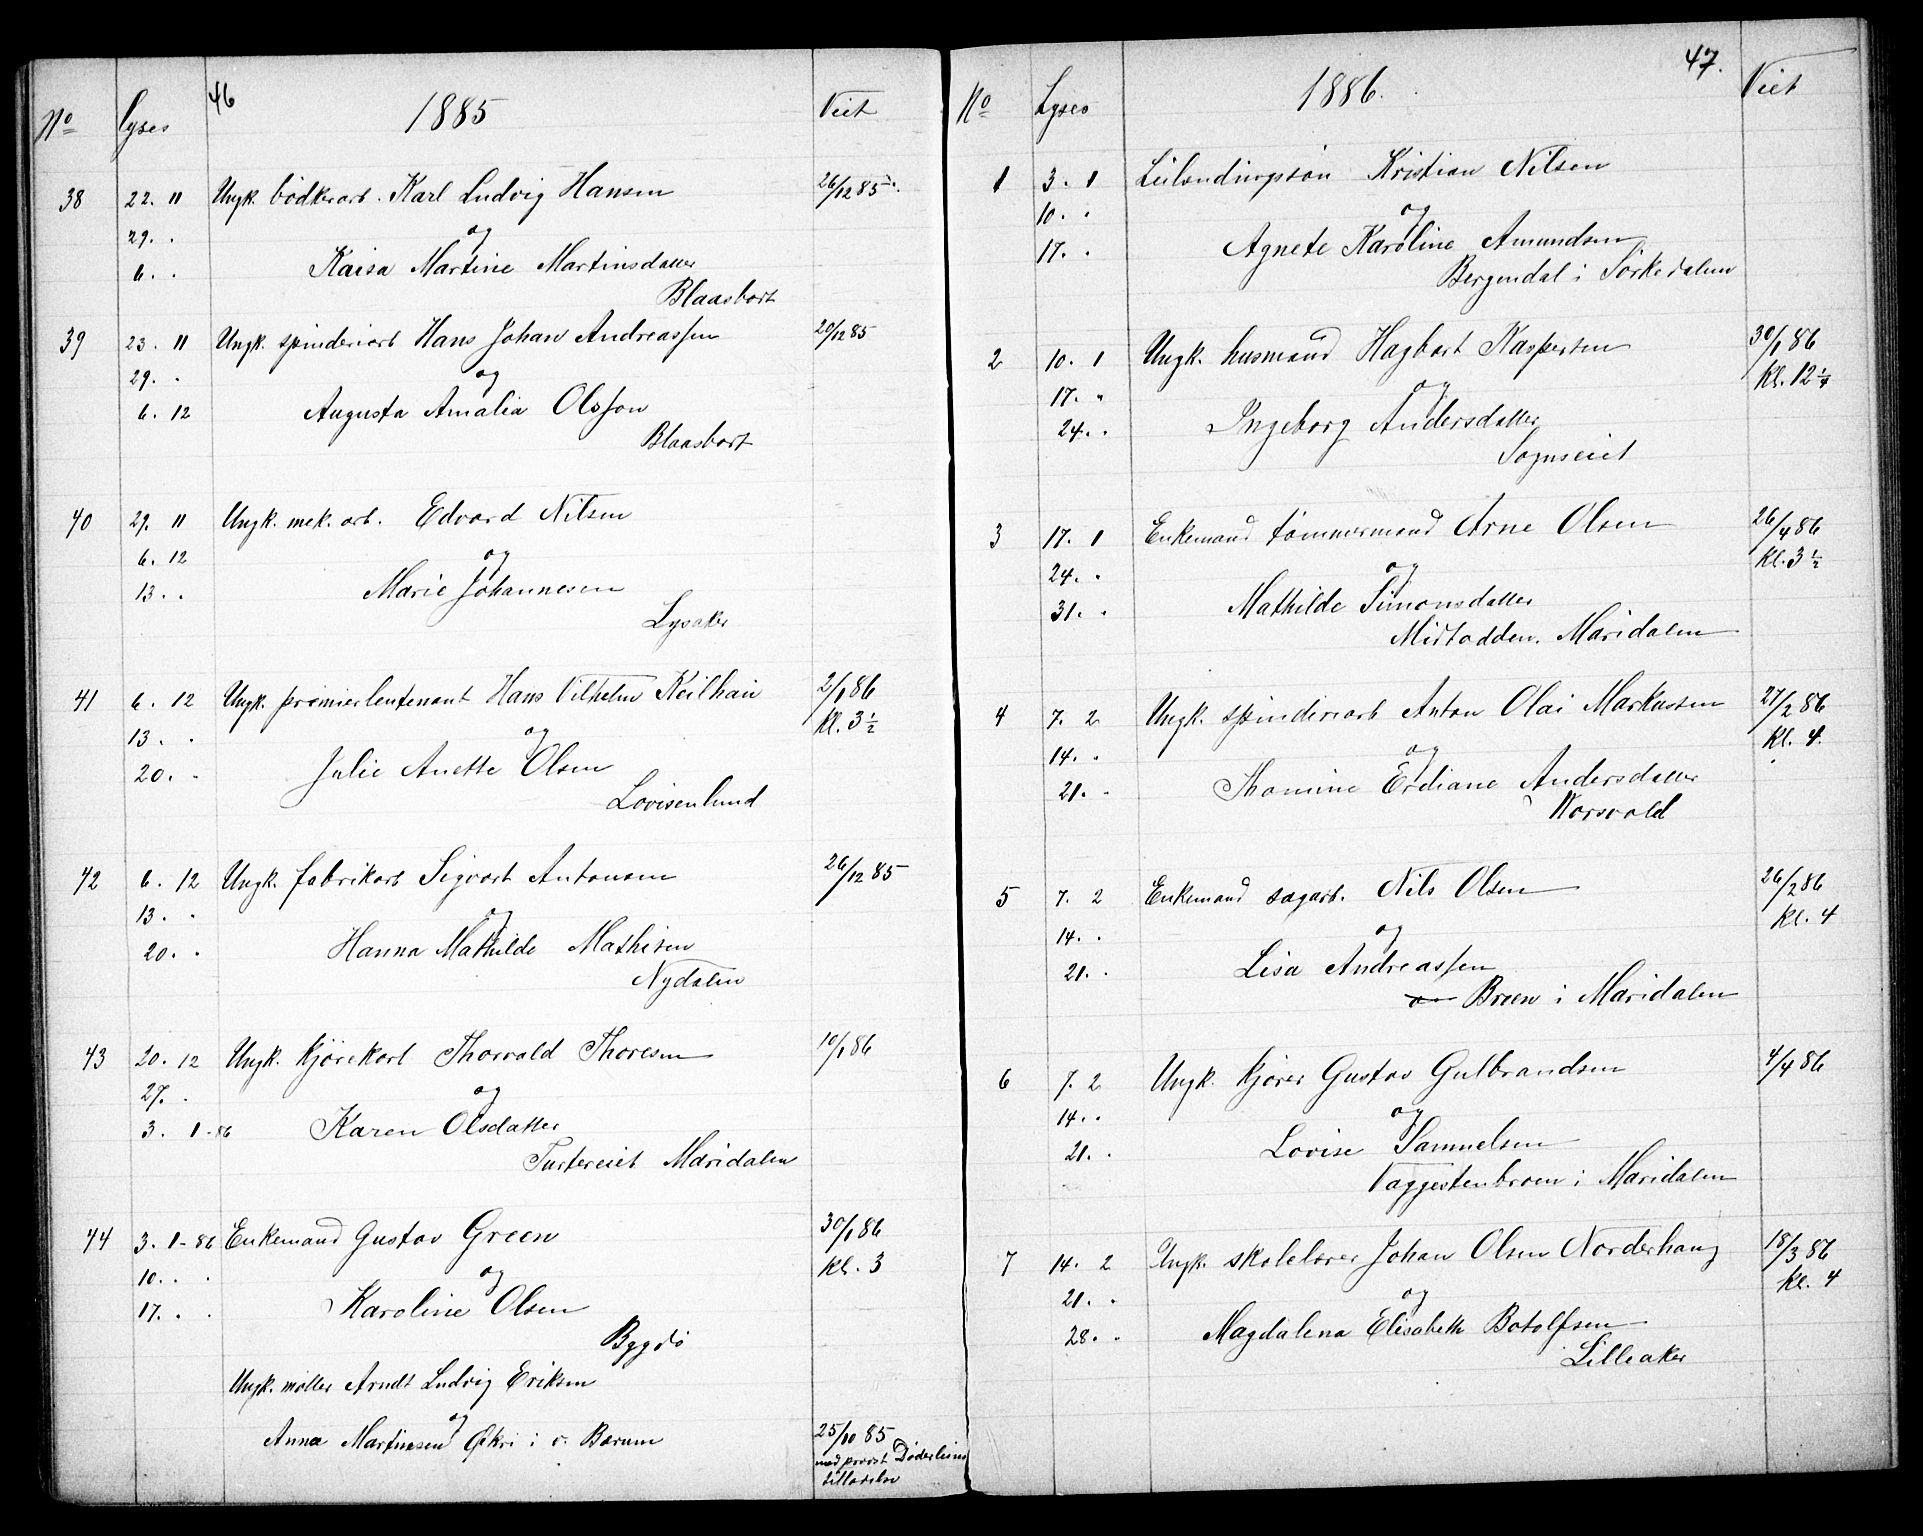 46
No Lyses 1885 Viet
38 22. 11 Ungk. bödkerarb. Karl Ludvig Hansen 26/12 85
29. " og
6. " Kaisa Martine Martinsdatter
Blaasbort
39 23. 11 Ungk. spinderiarb Hans Johan Andreassen 20/12 85
29. " og
6. 12 Augusta Amalia Olsson
Blaasbort
40 29. 11 Ungk. mek. arb. Edvard Nilsen
6. 12 og
13. " Marie Johannesen
Lysaker
41 6. 12 Ungk. premierleutenant Hans Vilhelm Keilhau 2/1 86
13. " og kl. 3 1/2
20. " Julie Anette Olsen
Lovisenlund
42 6. 12 Ungk. fabrikarb Sigvart Antonsen 26/12 85
13. " og
20. " Hanna Mathilde Mathisen
Nydalen
43 20. 12 Ungk. kjörekarl Thorvald Thoresen 10/1 86
27. " og
3. 1-86 Karen Olsdatter
Turtereiet Maridalen
44 3. 1-86 Enkemand Gustav Green 30/1 86
10. " " og kl. 3
17. " " Karoline Olsen
Bygdö
Ungk. möller Arndt Ludvig Eriksen
og
Anna Martinesen Økri i v. Bærum 25/10 85
med provst Döderleins
tilladelse
47.
No Lyses 1886. Viet
1 3. 1 Leilændingsön Kristian Nilsen
10. " og
17. " Agnete Karoline Amundsen
Bergendal i Sörkedalen
2 10. 1 Ungk. husmand Hagbart Kaspersen 30/1 86
17. " og kl. 12 1/4
24. " Ingeborg Andersdatter
Sognseiet
3 17. 1 Enkemand tömmermand Arne Olsen 26/4 86
24. " og kl. 3 1/2
31. " Mathilde Simonsdatter
Midtodden. Maridalen
4 7. 2 Ungk. spinderiarb Anton Olai Markussen 27/2 86
14. " og kl. 4.
21. " Thomine Erdiane Andersdatter
Korsvold
5 7. 2 Enkemand sagarb. Nils Olsen 26/2 86
14. " og kl. 4
21. " Lisa Andreassen
Broen i Maridalen
6 7. 2 Ungk. kjörer Gustav Gulbrandsen 4/4 86
14. " og
21. " Lovise Samuelsen
Vaggestenbroen i Maridalen
7 14. 2 Ungk. skolelærer Johan Olsen Norderhaug 18/3 86
21. " og kl. 4
28. " Magdalena Elisabeth Botolfsen
Lilleaker